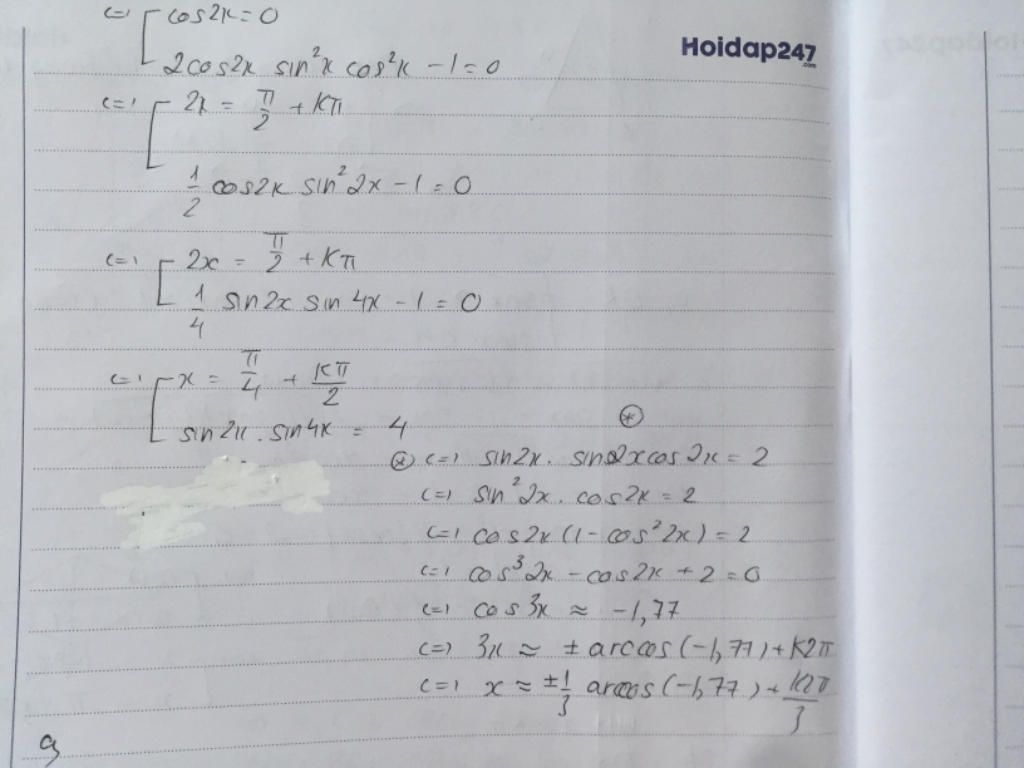 <=> [ cos2x = 0
Hoidap247.com
2cos2x sin²x cos²x - 1 = 0
<=> [ 2x = π/2 + kπ
1/2 cos2x sin²2x - 1 = 0
<=> [ 2x = π/2 + kπ
1/4 sin2x sin4x - 1 = 0
<=> [ x = π/4 + kπ/2
sin2x . sin4x = 4 (*)
(*) <=> sin2x . sin2xcos2x = 2
<=> sin²2x . cos2x = 2
<=> cos2x (1 - cos²2x) = 2
<=> cos³2x - cos2x + 2 = 0
<=> cos3x ≈ -1,77
<=> 3x ≈ ± arccos(-1,77) + k2π
<=> x ≈ ± 1/3 arccos(-1,77) + k2π/3